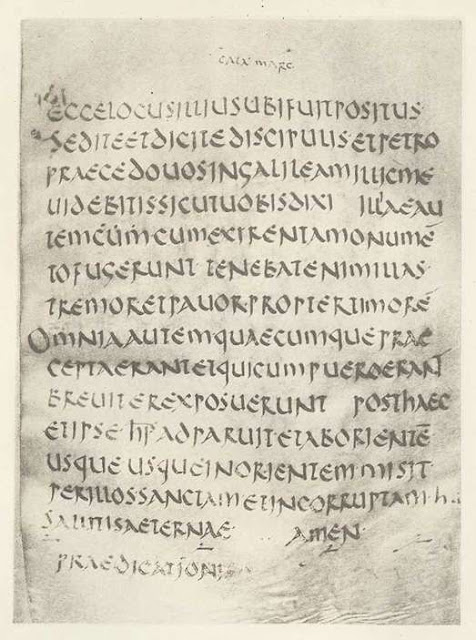 CATA MARC
ECCELOCUSILLIUSUBIFUITPOSITUS
SEDITEETDICITEDISCIPULISETPETRO
PRAECEDOUOSINGALILEAMILLICME
UIDEBITISSICUTUOBISDIXI ILLAEAU
TEMCUMCUMEXIRENTAMONUMĒ
TOFUGERUNT TENEBATENIMILLAS
TREMORETPAUORPROPTERTIMORĒ
OMNIAAUTEMQUAECUMQUEPRAE
CEPTAERANTETQUICUMPUEROERANT
BREUITEREXPOSUERUNT POSTHAEC
ETIPSE hS̄ ADPARUITETABORIENTĒ
USQUE USQUEINORIENTEMMISIT
PERILLOSSANCTAMETINCORRUPTAM·h·
SALUTISAETERNAE AMEN
PRAEDICATIONIS